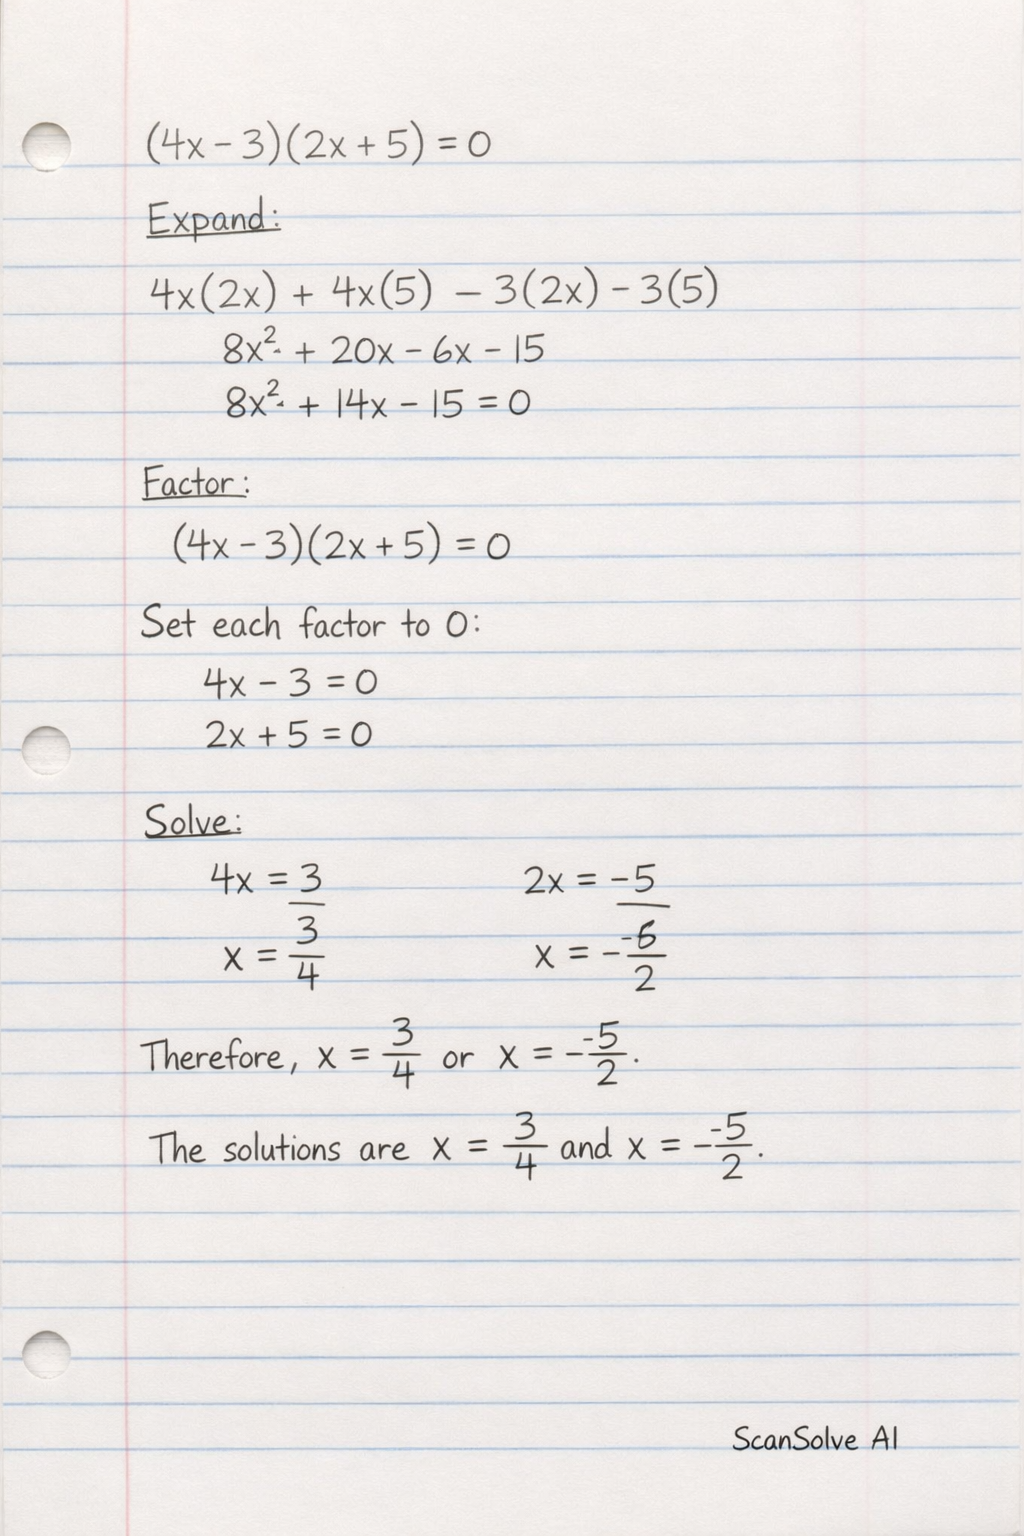 (4x - 3)(2x + 5) = 0
Expand:
4x(2x) + 4x(5) - 3(2x) - 3(5)
8x². + 20x - 6x - 15
8x². + 14x - 15 = 0
Factor:
(4x - 3)(2x + 5) = 0
Set each factor to 0:
4x - 3 = 0
2x + 5 = 0
Solve:
4x = 3 2x = -5
x = 3/4 x = --6/2
Therefore, x = 3/4 or x = --5/2.
The solutions are x = 3/4 and x = --5/2.
ScanSolve AI